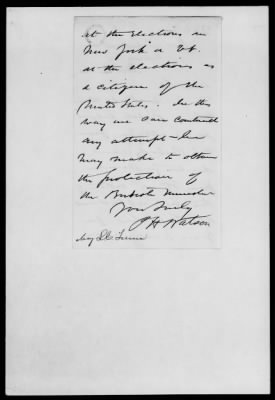 at the elections in
New York or
at the elections as
a citizen of the
United States. In this
way we can controvert
any attempt he
may make to obtain
the protection of
the British Minister
Yours truly
P H Watson
Maj L C Turner